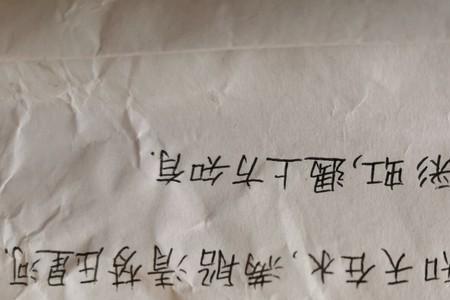 知天在水,满船清梦压星河.
彩虹,遇上方知有.